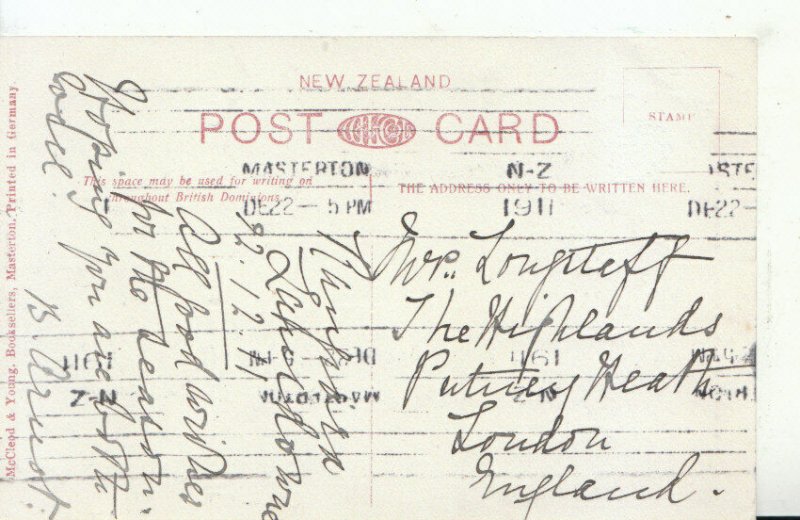 NEW ZEALAND
POST CARD
STAMP
This space may be used for writing on
throughout British Dominions
THE ADDRESS ONLY TO BE WRITTEN HERE.
MASTERTON N-Z
DE22 - 5 PM 1911 DE22-
Lansdowne
22.12.11
All good wishes
for the season.
Hoping you are both
well.
B.
Mrs. Longstaff
The Highlands
Putney Heath
London
England.
McCleod & Young, Booksellers, Masterton. Printed in Germany.